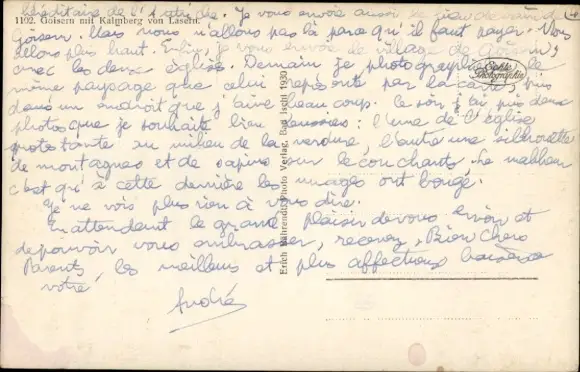 héréditaire de l' Je vous envoie aussi de
1102. Goisern mit Kalmberg von Lasern.
Goisern. Mais nous n'allons pas là parce qu'il faut payer. Nous
allons plus haut. Enfin, je vous envoie le village de Goisern,
avec les deux églises. Demain je photographierai le
même paysage que celui représenté par la carte, pris
dans un endroit que j'aime beaucoup. Ce soir j'ai pris deux
photos que je souhaite bien : l'une de l'Eglise
protestante au milieu de la verdure, l'autre une silhouette
de montagnes et de sapins sur le couchant. Le malheur
c'est qu'à cette dernière les nuages ont bougé.
Je ne vois plus rien à vous dire.
En attendant le grand plaisir de vous revoir et
de pouvoir vous embrasser, recevez, Bien Chers
Parents, les meilleurs et plus affectueux baisers
votre
André
Echte Photographie
Erich Bährendt, Photo Verlag, Bad Ischl 1930